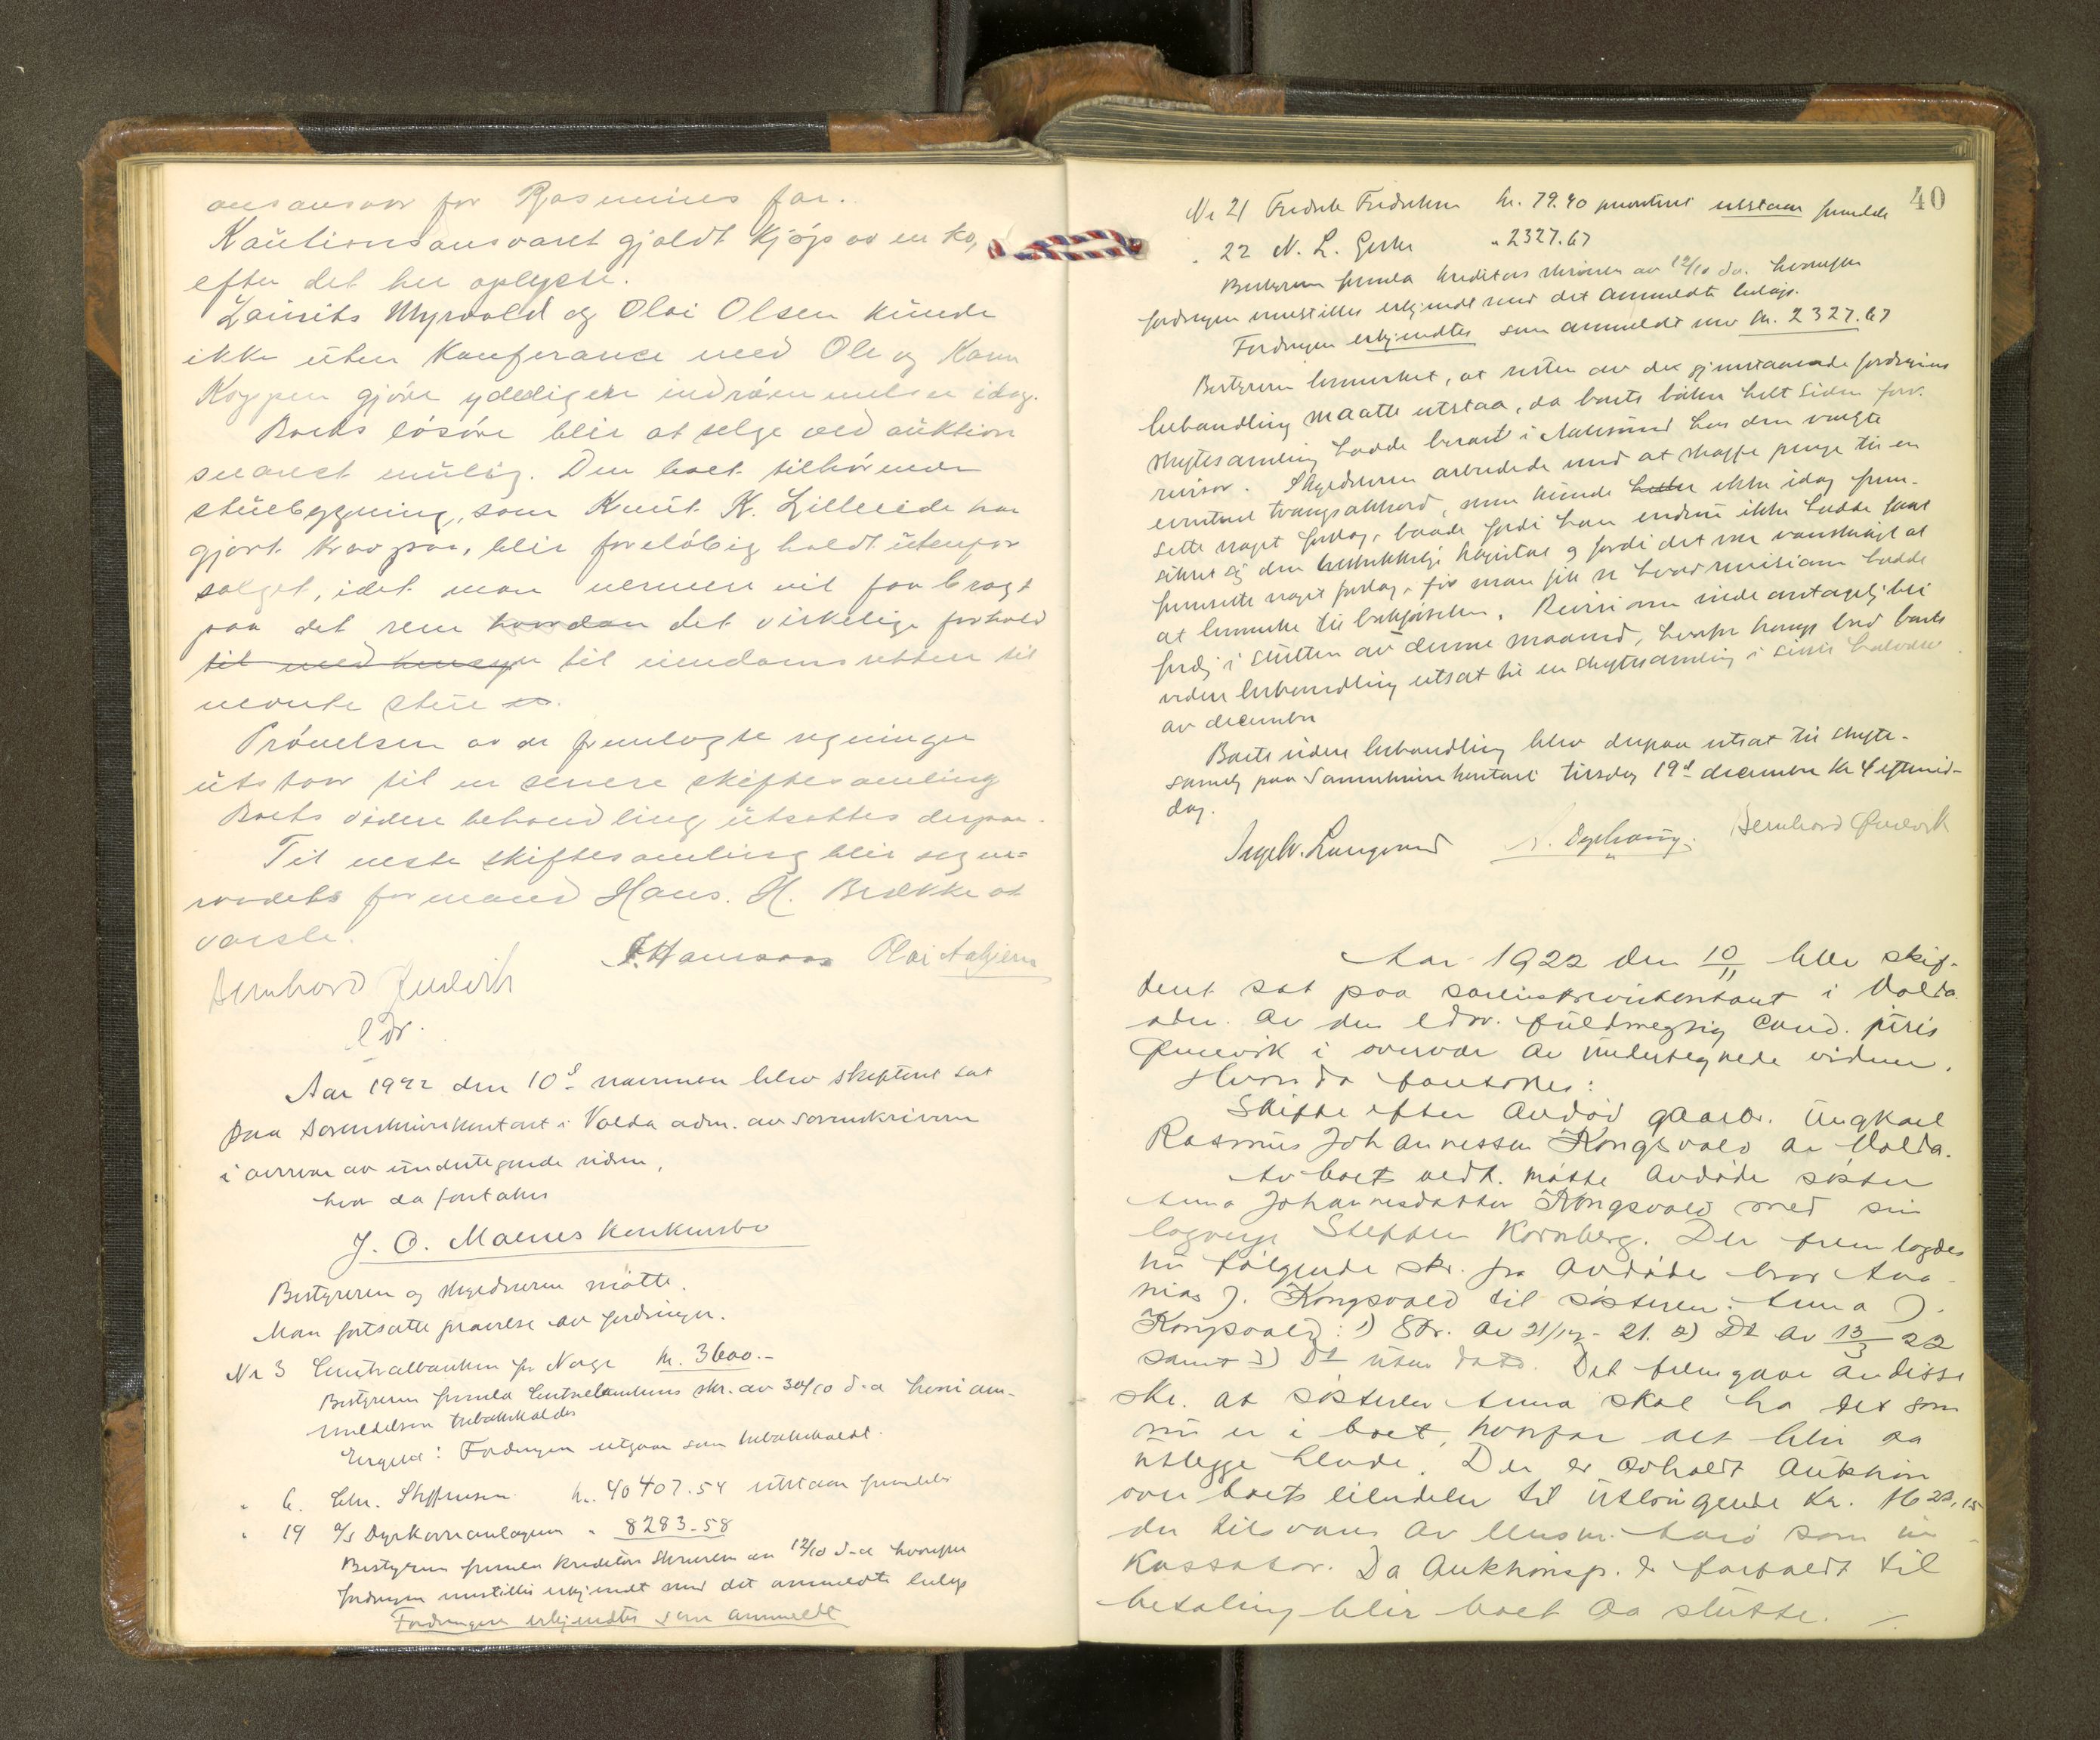 ansansvar for Rasmines far.
Kautionsansvaret gjaldt kjøp av en ko,
efter det her oplyste.
Laurits Myrvold og Olai Olsen kunde
ikke uten konferance med Ole og Karen
Koppen gjøre ydeligere indrømmelser idag.
Boets løsøre blir at selge ved auktion
snarest mulig. Den boet tilhørende
stuebygning, som Knut K. Lilleeide har
gjort krav paa, blir foreløbig holdt utenfor
salget, idet man nermere vil faa bragt
paa det rene hvordan det virkelige forhold
til med hensyn til eiendomsretten til
nevnte stue er.
Prøvelsen av de fremlagte regninger
utstaar til en senere skiftesamling
Boets videre behandling utsattes derpaa.
Til neste skiftesamling blir sogne-
raadets formand Hans. H. Brekke at
varsle.
J. Hamaaas Olai Aahjem
Bernhard Qvievik
edr.
Aar 1922 den 10d november blev skifteret sat
paa sorenskriverkontoret i Volda adm. av sorenskriveren
i overvær av undertegnede vidner,
hvor da foretokes
J. O. Maenes konkursbo
Bestyreren og skyldneren møtte.
Man fortsatte prøvelse av fordringer.
Nr 3 Centralbanken for Norge kr. 3600.-
Bestyreren fremla Centralbankens skr. av 30/10 d.a. hvori an-
meldelsen tilbakekaldes
Eragtet: Fordringen utgaar som tilbakekaldt.
" 6. Chr. Steffensen kr. 40407.54 utstaar fremdeles
" 19 A/S Dyrkorn anlegget " 8283.58
Bestyreren fremla kreditors skrivelse av 12/10 d.a. hvorefter
fordringen innstilles erkjendt med det anmeldte beløp
Fordringen erkjendtes som anmeldt
40
Nr 21 Fredrik Fredriksen kr. 79.40 prioritert utstaar fremdeles
" 22 N. L. " 2327.67
Bestyreren fremla kreditors skrivelse av 12/10 d.a. hvorefter
fordringen innstilles erkjendt med det anmeldte beløp.
Fordringen erkjendtes som anmeldt med kr. 2327.67
Bestyreren bemerket, at resten av de gjenstaaende fordringers
behandling maatte utstaa, da boets bøker helt siden forr.
skiftesamling hadde beroet i Aalesund hos den valgte
revisor. Skyldneren arbeidede med at skaffe penge til en
eventuel tvangsakkord, men kunde heller ikke idag frem-
sette noget forslag, baade fordi han endnu ikke hadde faat
sikret sig den kapital og fordi det var vanskeligt at
fremsette noget forslag, før man fik se hvad revisionen hadde
at bemerke til bokførselen. Revisionen vilde antagelig bli
færdig i slutten av denne maaned, hvorfor han bad boets
videre behandling utsat til en skiftesamling i siste halvdel
av december
Boets videre behandling blev derpaa utsat til skifte-
samling paa sorenskriverkontoret tirsdag 19d december kl 4 eftermid-
dag.
Ingolv. Langvand Bernhard Qvievik
Aar 1922 den 10/11 blev skif-
teret sat paa sorenskriverkontoret i Volda
adm. av den edsv. fuldmegtig cand. juris
Qvievik i overvær av undertegnede vidner.
Hvor da foretokes:
Skifte efter avdød gaardbr. ungkarl
Rasmus Johannessen Kongsvold av Volda.
Av boets vedk. møtte avdødes søster
Anna Johannesdatter Kongsvold med sin
lagverge Steffen Kornberg. Der fremlagdes
nu følgende skr. fra avdødes bror Ana-
nias J. Kongsvold til søsteren Anna J.
Kongsvold: 1) Skr. av 21/12- 21. 2) Dt av 13/3 22
samt 3) Dt uten dato. Det fremgaar av disse
skr. at søsteren Anna skal ha det som
nu er i boet, hvorfor det blir at
utlegge hende. Der er avholdt auktion
over boets eiendeler til utbringende kr. 1622,15
der tilsvares av som in-
kassator. Da auktionsp. er forfaldt til
betaling blir boet at slutte.